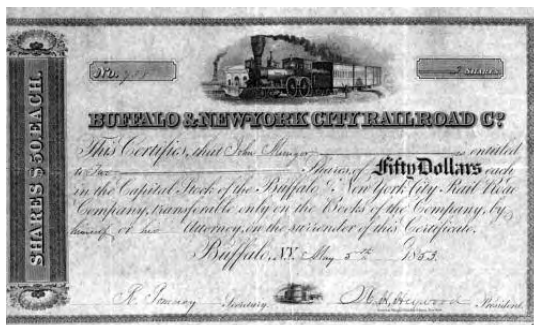 No.
Shares.
SHARES $50 EACH.
BUFFALO & NEW-YORK CITY RAILROAD Co.
This Certifies, that John is entitled
to Two Shares of Fifty Dollars each
in the Capital Stock of the Buffalo & New York City Rail Road
Company, transferable only on the Books of the Company, by
himself or his Attorney, on the surrender of this Certificate.
Buffalo, N.Y. May 5th 1853.
Secretary. President.